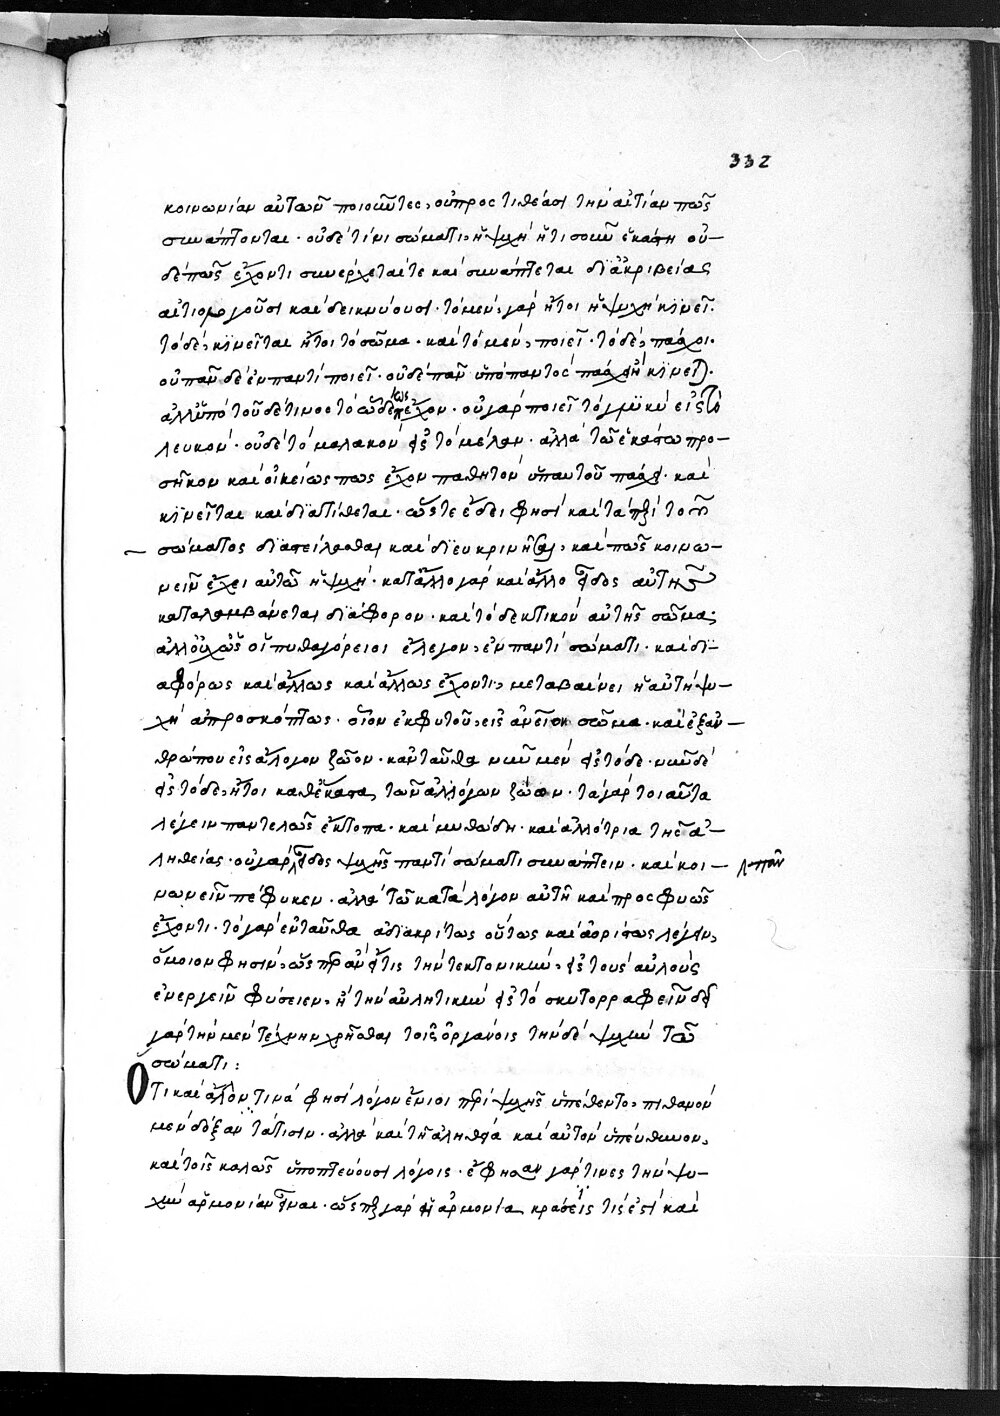 332
κοινωνίαν αὐτῶν ποιοῦντες, οὐ προστιθέασι τὴν αἰτίαν πῶς
συνάπτονται· οὐδὲ τίνι σώματι, ἡ ψυχὴ ἥτις οὖν ἑκάστη οὐ–
δέ πως ἔχοντι συνέρχεταί τε καὶ συνάπτεται δι' ἀκριβείας
αἰτιολογοῦσι καὶ δεικνύουσι· τὸ μὲν, γὰρ ἤτοι ἡ ψυχὴ κινεῖ·
τὸ δὲ, κινεῖται ἤτοι τὸ σῶμα· καὶ τὸ μὲν, ποιεῖ· τὸ δὲ, πάσχει·
οὐ πᾶν δὲ ἐν παντὶ ποιεῖ· οὐδὲ πᾶν ὑπὸ παντὸς πάσχει ἢ κινεῖται·
ἀλλ' ὑπὸ τοῦδέ τινος τὸ ὧδέ πως ἔχον· οὐ γὰρ ποιεῖ τὸ γλυκὺ εἰς τὸ
λευκόν· οὐδὲ τὸ μαλακὸν εἰς τὸ μέλαν· ἀλλὰ τῷ ἑκάστῳ προ–
σῆκον καὶ οἰκείως πως ἔχον παθητὸν ὑπ' αὐτοῦ πάσχει· καὶ
κινεῖται καὶ διατίθεται· ὥστε ἔδει φησὶ καὶ τὰ περὶ τοῦ
σώματος διαστείλασθαι καὶ διευκρινῆσαι, καὶ πῶς κοινω–
νεῖν ἔχει αὐτῷ ἡ ψυχή· κατ' ἄλλο γὰρ καὶ ἄλλο εἶδος αὐτῆς
καταλαμβάνεται διάφορον· καὶ τὸ δεκτικὸν αὐτῆς σῶμα·
ἀλλ' οὐχ ὡς οἱ πυθαγόρειοι ἔλεγον, ἐν παντὶ σώματι· καὶ δι–
αφόρως καὶ ἄλλως καὶ ἄλλως ἔχοντι, μεταβαίνει ἡ αὐτὴ ψυ–
χὴ ἀπροσκόπτως· οἷον ἐκ φυτοῦ, εἰς ἀνθρώπειον σῶμα· καὶ ἐξ αν–
θρώπου εἰς ἄλογον ζῶον· κἀνταῦθα νῦν μὲν εἰς τόδε· νῦν δὲ
εἰς τόδε, ἤτοι καθ' ἕκαστα τῶν ἀλόγων ζώων· τὰ γὰρ τοιαῦτα
λέγειν παντελῶς ἔκτοπα· καὶ μυθώδη· καὶ ἀλλότρια τῆς ἀ–
ληθείας· οὐ γὰρ εἶδος ψυχῆς παντὶ σώματι συνάπτειν· καὶ κοι–
νωνεῖν πέφυκεν· ἀλλὰ τῷ κατὰ λόγον αὐτῇ καὶ προσφυῶς
ἔχοντι· τὸ γὰρ ἐνταῦθα ἀδιακρίτως οὕτως καὶ ἀορίστως λέγειν,
ὅμοιον φησὶν, ὥσπερ ἂν εἴ τις τὴν τεκτονικὴν, εἰς τοὺς αὐλοὺς
ἐνεργεῖν φύσειεν, ἢ τὴν αὐλητικὴν εἰς τὸ σκυτορραφεῖν δεῖ
γὰρ τὴν μὲν τέχνην χρῆσθαι τοῖς ὀργάνοις τὴν δὲ ψυχὴν τῷ
σώματι:
Ὅτι καὶ ἄλλον τινὰ φησὶ λόγον ἔνιοι περὶ ψυχῆς ὑπέθεντο, πιθανὸν
μὲν δόξαν τισίν· ἀλλὰ καὶ τῇ ἀληθείᾳ καὶ αὐτὸν ὑπεύθυνον,
καὶ τοῖς καλῶς ὑποπτεύουσι λόγοις· ἔφησαν γάρ τινες τὴν ψυ–
χὴν ἁρμονίαν εἶναι· ὥσπερ γὰρ ἡ ἁρμονία κρᾶσίς τις ἐστὶ καὶ